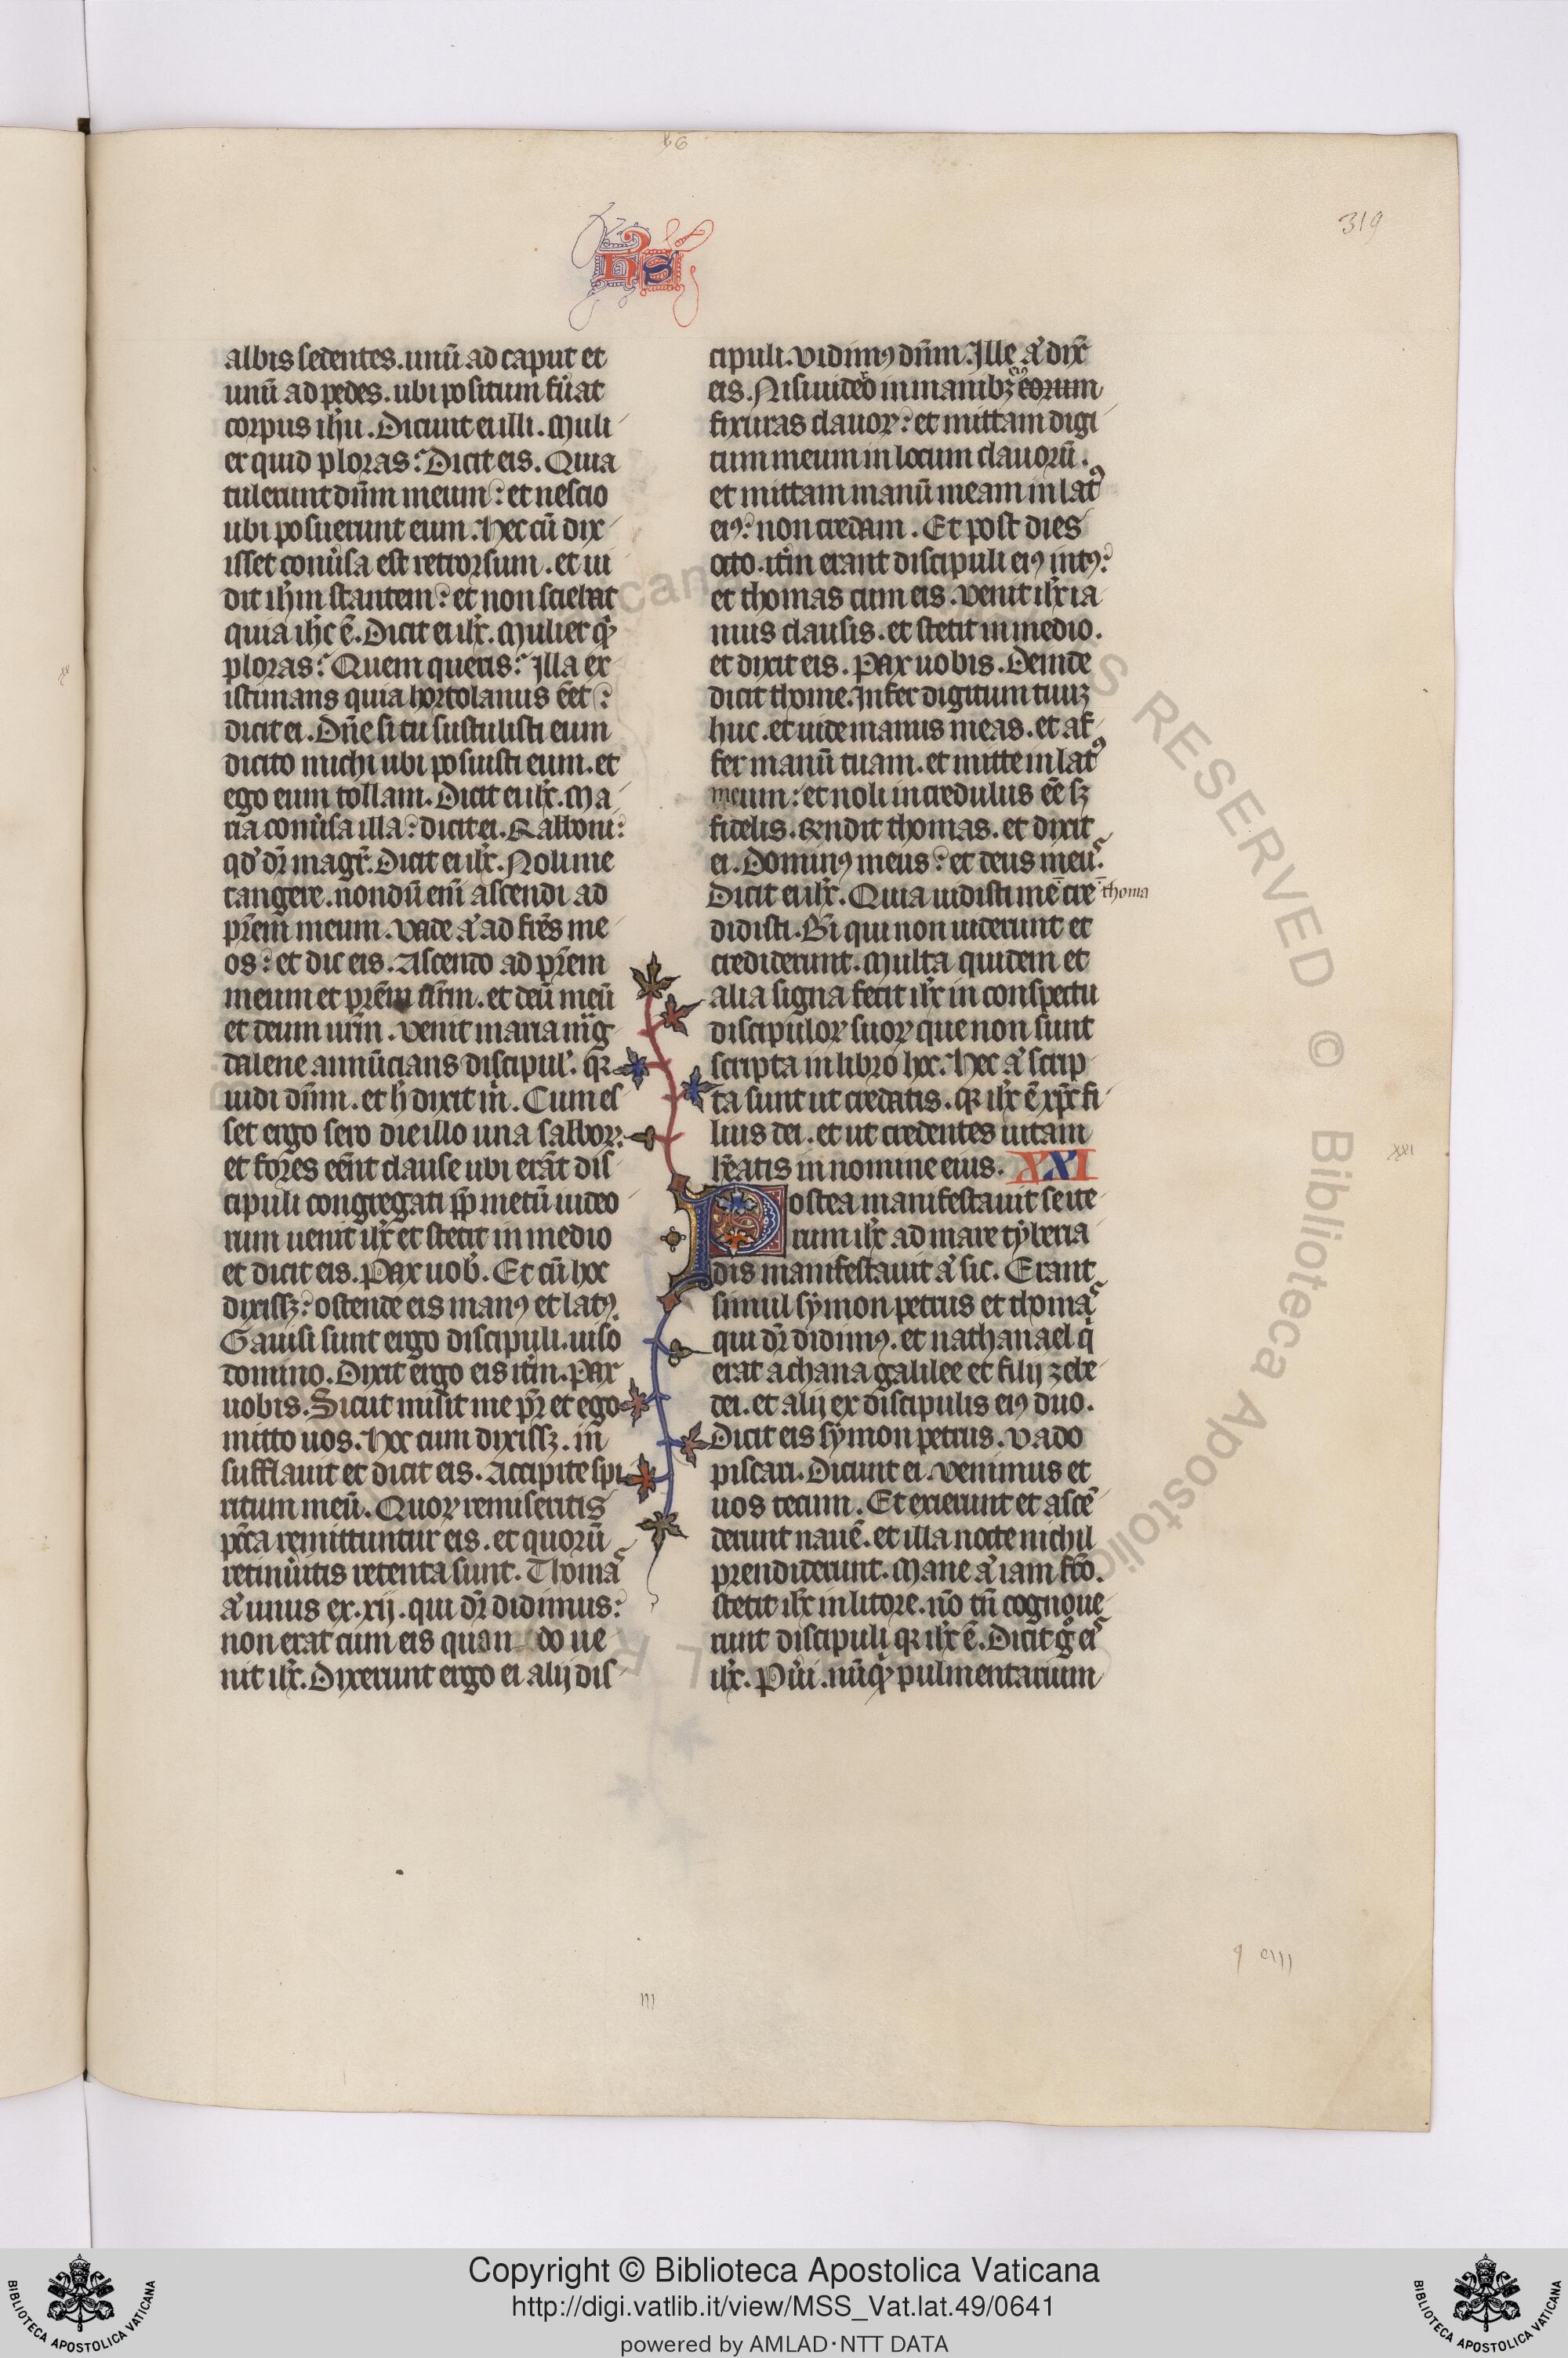 86
319
hS
albis sedentes. unū ad caput et
unū ad pedes. ubi positum fu̓at
corpus ih̄u. Dicunt ei illi. Muli
er quid ploras? Dicit eis. Quia
tulerunt dn̄m meum: et nescio
ubi posuerunt eum. Hec cū dix
isset conu̓sa est retrorsum. et ui
dit ih̄m stantem: et non sciebat
quia ih̄c ē. Dicit ei ih̄c. Mulier qͥd
ploras? Quem queris? Illa ex
istimans quia hortolanus eēt:
dicit ei. Dn̄e si tu sustulisti eum
dicito michi ubi posuisti eum. et
ego eum tollam. Dicit ei ih̄c. Ma
ria conu̓sa illa: dicit ei. Rabboni:
qd̓ dr̄ magr̄. Dicit ei ih̄c. Noli me
tangere. nondū eni̅ ascendi ad
pr̄em meum. Vade aͧ ad fr̄es me
os: et dic eis. Ascendo ad pr̄em
meum et pr̄em ur̄m. et deū meū
et deum ur̄m. Venit maria mag
dalene annūcians discipul̓. qꝛ
uidi dn̄m. et h̓ dixit m̓. Cum es
set ergo sero die illo una sabboꝝ.
et fores eēnt clause ubi erāt dis
cipuli congregati ꝓp̄ metū iudeo
rum uenit ih̄c et stetit in medio
et dicit eis. Pax uob̓. Et cū hoc
dixissꝫ: ostendē eis manꝰ et latꝰ.
Gauisi sunt ergo discipuli. uiso
domino. Dixit ergo eis it̓m. Pax
uobis. Sicut misit me pr̄ et ego
mitto uos. Hoc cum dixissꝫ. in
sufflauit et dicit eis. Accipite spi
ritum meū. Quoꝝ remiseritis
pc̄ca remittuntur eis. et quorū
retinu̓itis retenta sunt. Thomas
aͧ unus ex .xij. qui dr̄ didimus:
non erat cum eis quan do ue
nit ih̄c. Dixerunt ergo ei alij dis
cipuli. Vidimꝰ dn̄m. Ille aͧ dix̄
eis. Nisi uidero in manibꝫ eorum eiꝰ
fixuras clauoꝝ: et mittam digi
tum meum in locum clauorū.
et mittam manū meam in latꝰ
eiꝰ: non credam. Et post dies
octo. it̓m erant discipuli eiꝰ intꝰ:
et thomas cum eis. Venit ih̄c ia
nuis clausis. et stetit in medio.
et dixit eis. Pax uobis. Deinde
dicit thome. Infer digitum tuuꝫ
huc. et uide manus meas. et af
fer manū tuam. et mitte in latꝰ
meum: et noli incredulus eē sꝫ
fidelis. Rn̄dit thomas. et dixit
ei. Dominꝰ meus: et deus meus.
Dicit ei ih̄c. Quia uidisti me cre
thoma
didisti. Bt̄i qui non uiderunt et
crediderunt. Multa quidem et
alia signa fecit ih̄c in conspectu
discipuloꝝ suoꝝ que non sunt
scripta in libro hoc. Hec aͧ scrip
ta sunt ut credatis. qꝛ ih̄c ē xp̄c fi
lius dei. et ut credentes uitam
hēatis in nomine eius. XXI
xxi
Postea manifestauit se ite
rum ih̄c ad mare tyberia
dis manifestauit aͧ sic. Erant
simul symon petrus et thomas
qui dr̄ didimꝰ. et nathanael qͥ
erat a chana galilee et filij zebe
dei. et alij ex discipulis eiꝰ duo.
Dicit eis symon petrus. Vado
piscari. Dicunt ei. Venimus et
nos tecum. Et exierunt et ascē
derunt nauē. et illa nocte nichil
prendiderunt. Mane aͧ iam fc̄o.
stetit ih̄c in litore. nō tn̄ cognoue
runt discipuli qꝛ ih̄c ē. Dicit g̊ eis
ih̄c. Pu̓i. nūqͥd pulmentarium
III
Copyright © Biblioteca Apostolica Vaticana
http://digi.vatlib.it/view/MSS_Vat.lat.49/0641
powered by AMLAD·NTT DATA
BIBLIOTECA APOSTOLICA VATICANA
BIBLIOTECA APOSTOLICA VATICANA